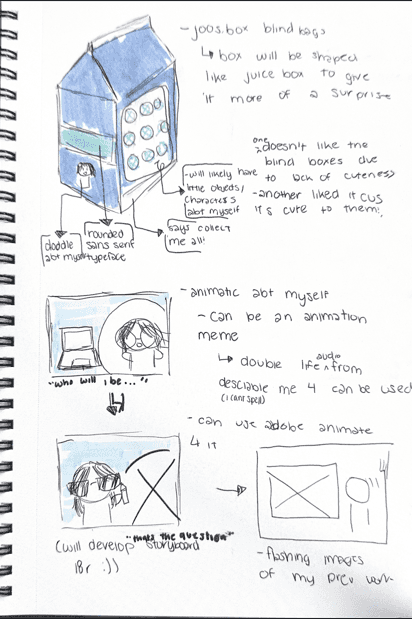 - joos.box blind bags
↳ box will be shaped
like juice box to give
it more of a surprise
one doesn't like the
blind boxes due
to lack of cuteness
- another liked it cus
it's cute to them!
- will likely have
little objects/
characters
abt myself
says collect
me all!
rounded
sans serif
typeface
doddle
abt myself
- animatic abt myself
- can be an animation
meme
↳ double life audio from
desciable me 4 can be used
(i cant spell)
"who will i be..."
- can use adobe animate
4 it
"thats the question"
(will develop storyboard
l8r :))
- flashing images
of my prev work